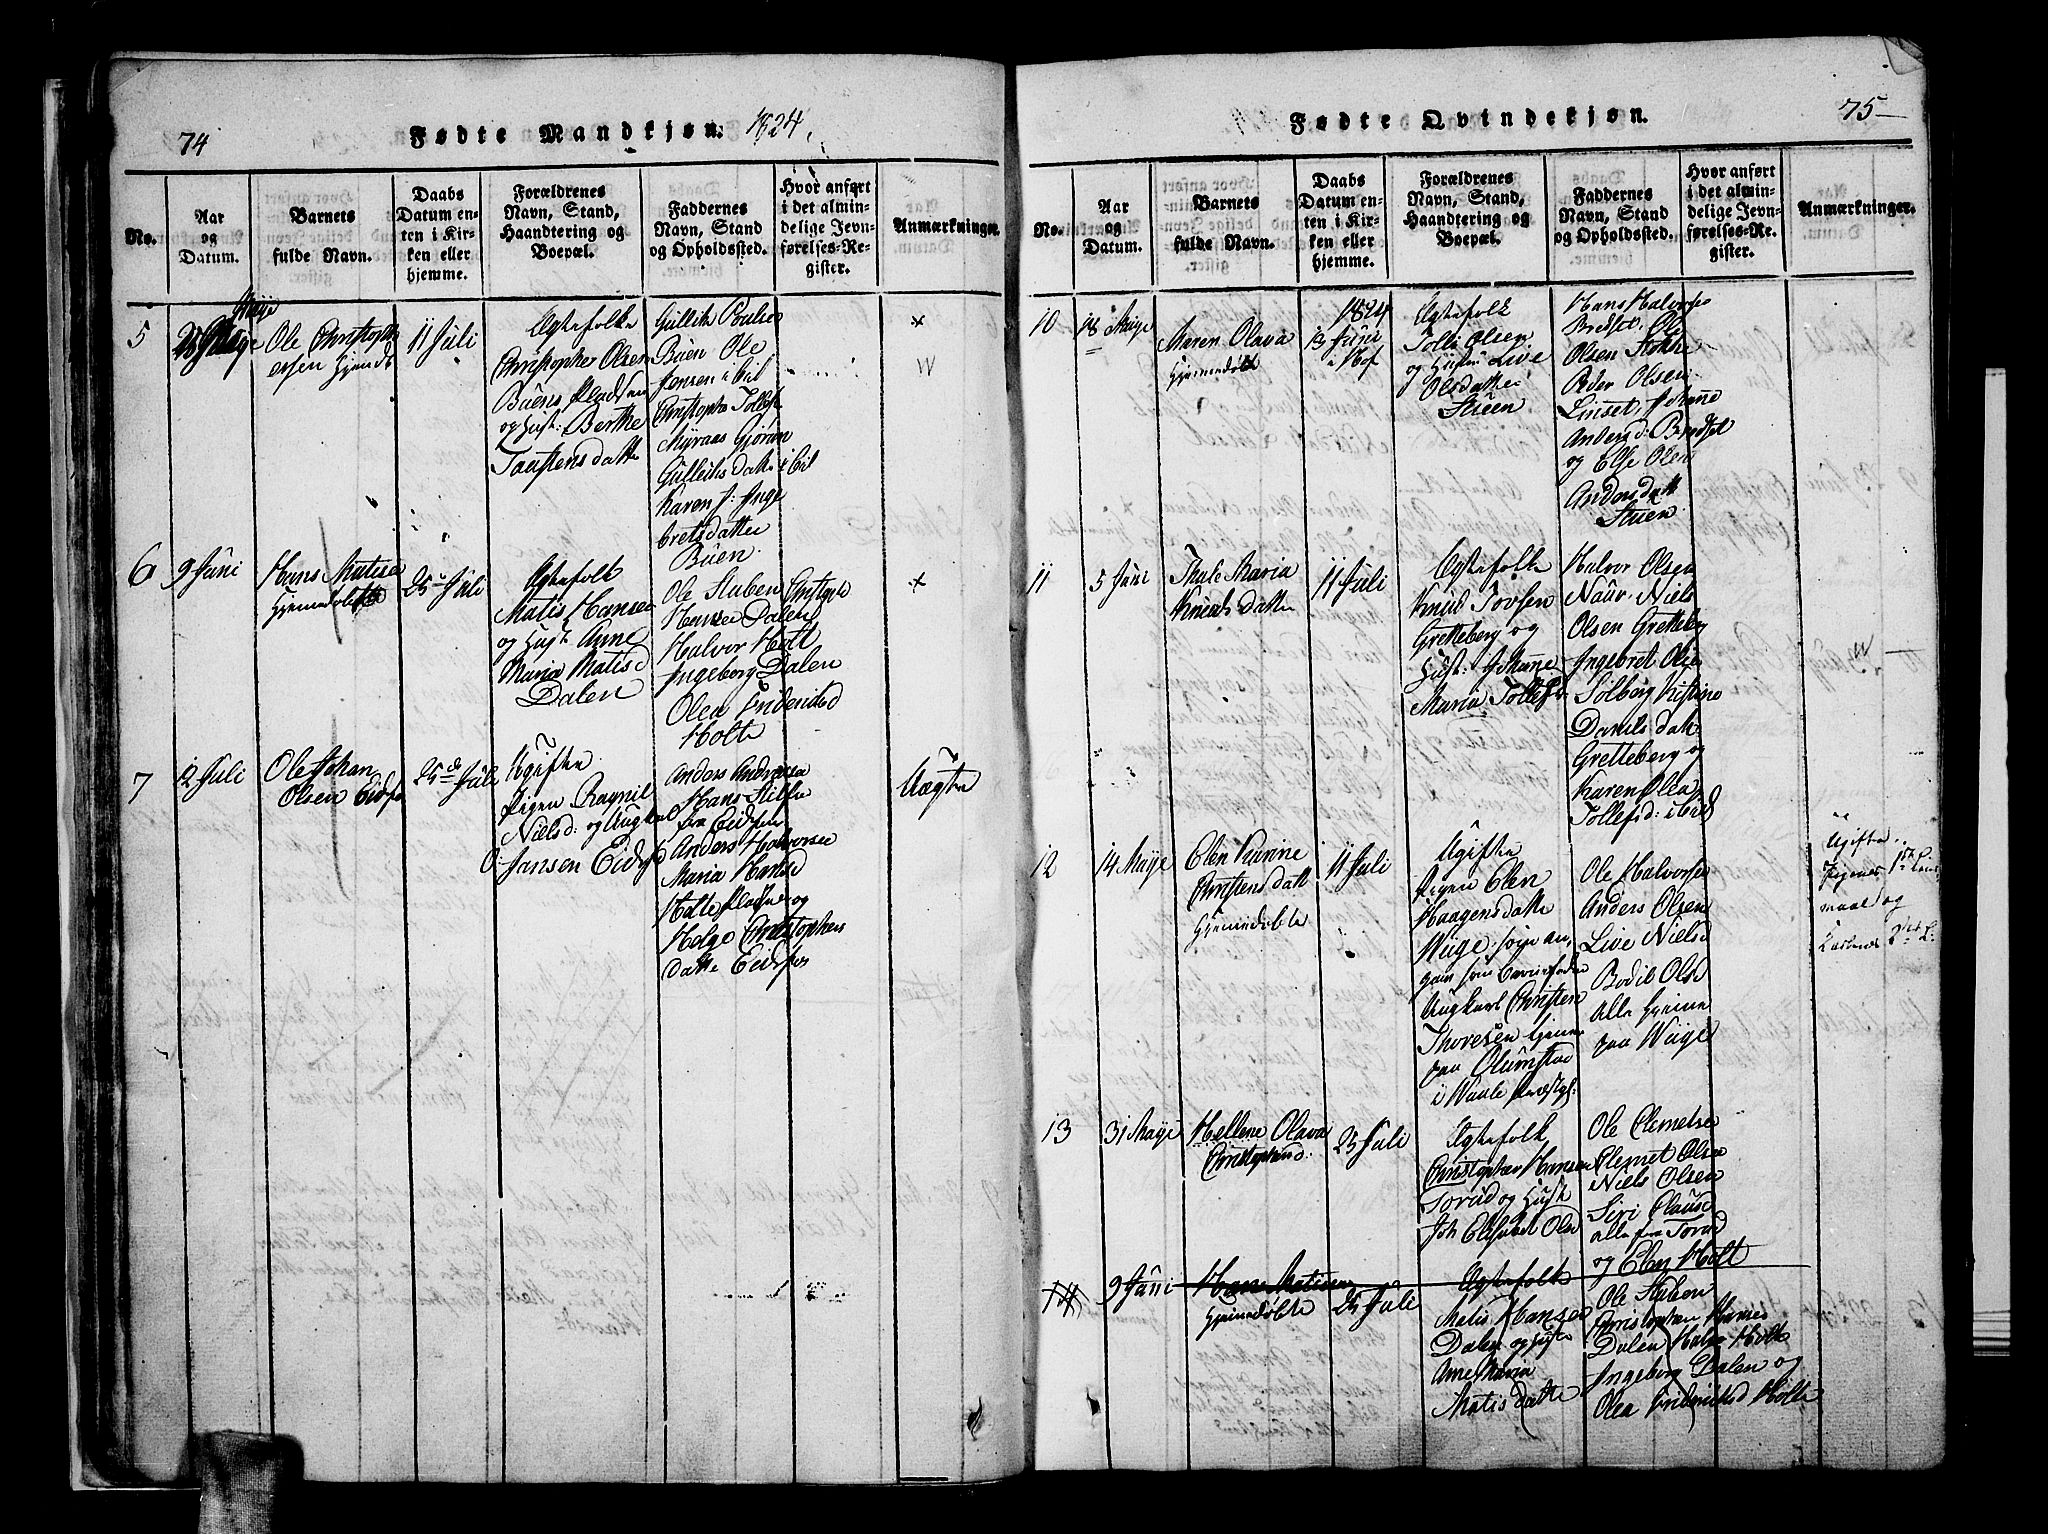 74
Fødte Mandkjøn. 1824.
No.
Aar
og
Datum.
Barnets
fulde Navn.
Daabs
Datum en-
ten i Kir-
ken eller
hjemme.
Forældrenes
Navn, Stand,
Haandtering og
Boepæl.
Faddernes
Navn, Stand
og Opholdssted.
Hvor anført
i det almin-
delige Jevn-
førelses-Re-
gister.
Anmærkninger.
5
Maye
Ole Christoph
ersen Hjemdt
11 Juli
Ægtefolk
Christopher Olsen
Büens Pladsen
og Hust: Berthe
Toustensdatte
Gullik Poulse
Büen Ole
Jensen i bil
Christopher Tollefs
Myraas Gjøran
Gulleiksdatte i bil
Karen J: Inge
bretsdatter
Büen.
6
9 Juni
Hans Matisen
Hjemedøbte
25 Juli
Ægtefolk
Matis Hansen
og Hust. Anne
Maria Matisd
Dalen
Ole Stuben Christophe
Hansen Dalen
Halvor Holt
Ingeborg Dalen
Olea Friderichsd
Holte
7
12 Juli
Ole Johan
Olsen Eidsfos
25de Juli
Ugifte
Pigen Ragnil
Nielsd: og Ungkarl
O: Jansen Eidsfos
Anders Andersen
Hans
fra Eidsfos
Anders Halvorsen
Maria Hansd
Holte Pladsen og
Helge Christophers
datte Eidsfos
Uægte
Fødte Qvindekjøn.
75
No.
Aar
og
Datum.
Barnets
fulde Navn.
Daabs
Datum en-
ten i Kir-
ken eller
hjemme.
Forældrenes
Navn, Stand,
Haandtering og
Boepæl.
Faddernes
Navn, Stand
og Opholdssted.
Hvor anført
i det almin-
delige Jevn-
førelses-Re-
gister.
Anmærkninger.
10
18 Maye
Maren Olava
Hjemmedøbt
1824
13 Juni
i Hof
Ægtefolk
Tolli Olsen
og Hustru Live
Olsdatter
Stüen
Hans Halvorse
Bredset, Ole
Olsen Stokke
Peder Olsen
Linset, Johane
Andersd: Bredset
og Else Olea
Andersdatt
Stüen.
11
5 Juni
Thale Maria
Knudsdatte
11 Juli
Ægtefolk
Knud Torsen
Gretteberg og
Hust: Johanne
Maria Tollefsd
Halvor Olsen
Naür. Niels
Olsen Gretteberg
Ingebret Olsen
Solberg Kristine
Danielsdatte
Gretteberg og
Karen Olea
Tollefsd: i bil
12
14 Maye
Elen Karine
Christensdatt
Hjemedøbte
11 Juli
Ugifte
Pigen Elen
Haagensdatte
Wüge som an
gav som Barnefader
Ungkarl Christen
Thoresen tjener
paa Olumstad
i Waale Præstgl:
Ole Halvorse
Anders Olsen
Live Nielsd
Bodil Olsd
alle hjemme
paa Wüge
Ugifte
Pigenes 1ste Leier
maal og
Karlenes 2det L:
13
31 Maye
Hellene Olava
Christophersd:
25 Juli
Ægtefolk
Christopher Hansen
Torud og Hust
Joh Elisabet Olsd
Ole Clemetsen
Clemet Olsen
Niels Olsen
Siri Clausd
alle fra Torud
og Elen Holt
14
9 Juni
Hans Matisen
Hjemedøbte
25 Juli
Ægtefolk
Matis Hansen
Dalen og Hust
Anne Maria
Matisdatte
Ole Stuben
Christopher Hansen
Dalen Halvor Holt
Ingeborg Dalen og
Olea Fridrichsd Holte